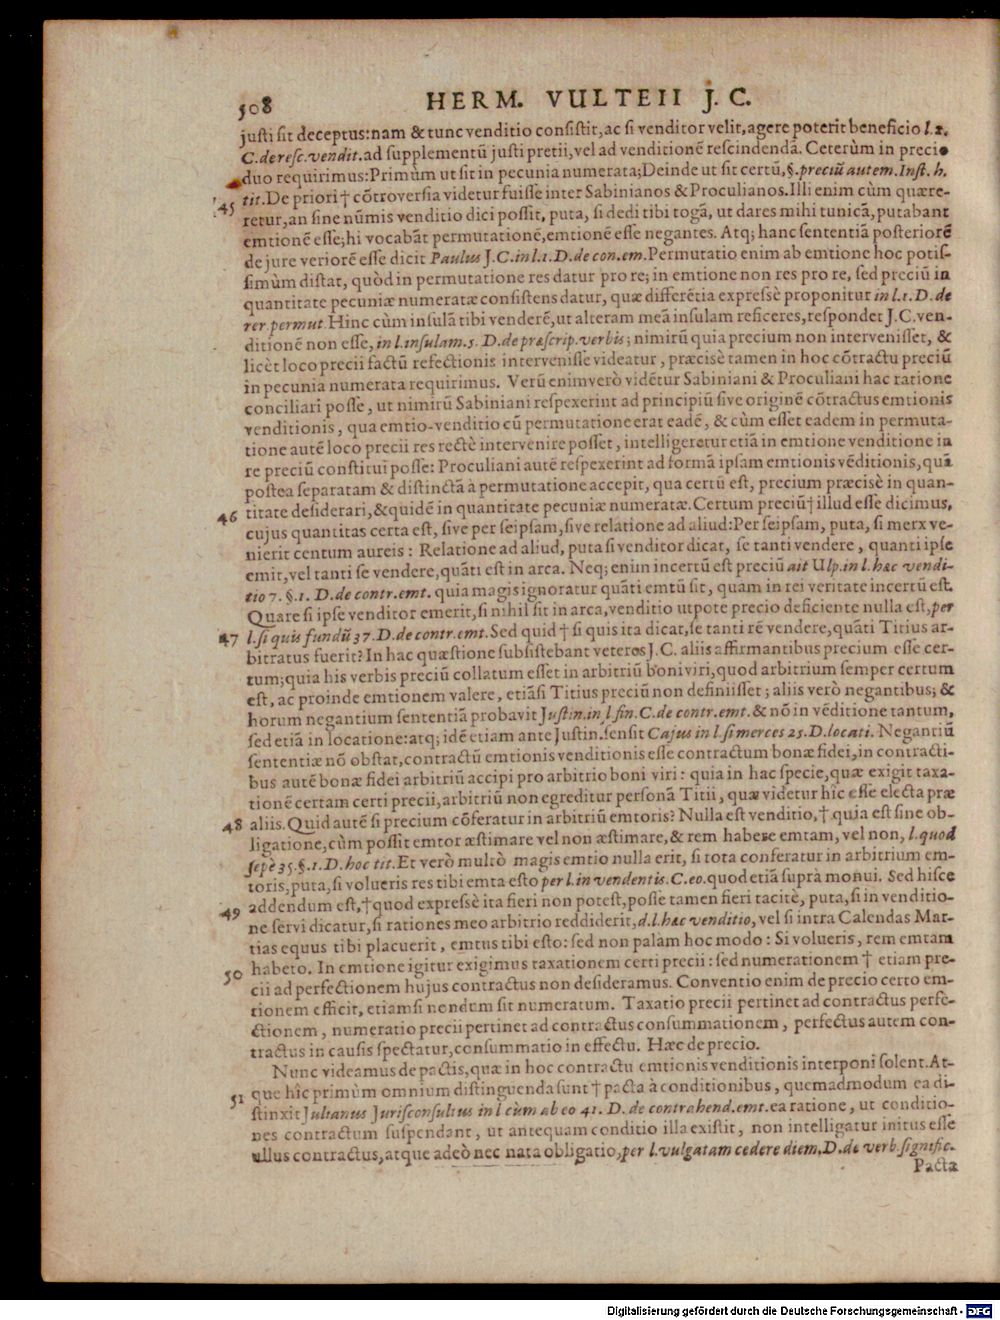 508 HERM. VULTEII J. C.
justi sit deceptus: nam & tunc venditio consistit, ac si venditor velit, agere poterit beneficio l. 2.
C. de resc. vendit. ad supplementũ justi pretii, vel ad venditionẽ rescindendã. Ceterùm in precio
duo requirimus: Primùm ut sit in pecunia numerata; Deinde ut sit certũ, §. preciũ autem. Inst. h.
45 tit. De priori † cõtroversia videtur fuisse inter Sabinianos & Proculianos. Illi enim cùm quære-
retur, an sine nũmis venditio dici possit, puta, si dedi tibi togã, ut dares mihi tunicã, putabant
emtionẽ esse; hi vocabãt permutationẽ, emtionẽ esse negantes. Atq; hanc sententiã posteriorẽ
de jure veriorẽ esse dicit Paulus J. C. in l. 1. D. de con. em. Permutatio enim ab emtione hoc potis-
simùm distat, quòd in permutatione res datur pro re; in emtione non res pro re, sed preciũ in
quantitate pecuniæ numeratæ consistens datur, quæ differẽtia expressè proponitur in l. 1. D. de
rer. permut. Hinc cùm insulã tibi venderẽ, ut alteram meã insulam reficeres, respondet J. C. ven-
ditionẽ non esse, in l. insulam. 5. D. de præscrip. verbis; nimirũ quia precium non intervenisset, &
licèt loco precii factũ refectionis intervenisse videatur, præcisè tamen in hoc cõtractu preciũ
in pecunia numerata requirimus. Verũ enimverò vidẽtur Sabiniani & Proculiani hac ratione
conciliari posse, ut nimirũ Sabiniani respexerint ad principiũ sive originẽ cõtractus emtionis
venditionis, qua emtio-venditio cũ permutatione erat eadẽ, & cùm esset eadem in permuta-
tione autẽ loco precii res rectè intervenire posset, intelligeretur etiã in emtione venditione in
re preciũ constitui posse: Proculiani autẽ respexerint ad formã ipsam emtionis vẽditionis, quã
postea separatam & distinctã à permutatione accepit, qua certũ est, precium præcisè in quan-
46 titate desiderari, & quidẽ in quantitate pecuniæ numeratæ. Certum preciũ † illud esse dicimus,
cujus quantitas certa est, sive per seipsam, sive relatione ad aliud: Per seipsam, puta, si merx ve-
nierit centum aureis: Relatione ad aliud, puta si venditor dicat, se tanti vendere, quanti ipse
emit, vel tanti se vendere, quãti est in arca. Neq; enim incertũ est preciũ ait Ulp. in l. hæc vendi-
tio 7. §. 1. D. de contr. emt. quia magis ignoratur quãti emtũ sit, quam in rei veritate incertũ est.
Quare si ipse venditor emerit, si nihil sit in arca, venditio utpote precio deficiente nulla est, per
47 l. si quis fundũ 37. D. de contr. emt. Sed quid † si quis ita dicat, se tanti rẽ vendere, quãti Titius ar-
bitratus fuerit? In hac quæstione subsistebant veteres J. C. aliis affirmantibus precium esse cer-
tum; quia his verbis preciũ collatum esset in arbitriũ boni viri, quod arbitrium semper certum
est, ac proinde emtionem valere, etiãsi Titius preciũ non definiisset; aliis verò negantibus; &
horum negantium sententiã probavit Justin. in l. fin. C. de contr. emt. & nõ in vẽditione tantum,
sed etiã in locatione: atq; idẽ etiam ante Justin. sensit Cajus in l. si merces 25. D. locati. Negantiũ
sententiæ nõ obstat, contractũ emtionis venditionis esse contractum bonæ fidei, in contracti-
bus autẽ bonæ fidei arbitriũ accipi pro arbitrio boni viri: quia in hac specie, quæ exigit taxa-
tionẽ certam certi precii, arbitriũ non egreditur personã Titii, quæ videtur hîc esse electa præ
48 aliis. Quid autẽ si precium cõferatur in arbitriũ emtoris? Nulla est venditio, † quia est sine ob-
ligatione, cùm possit emtor æstimare vel non æstimare, & rem habere emtam, vel non, l. quod
sepè 35. §. 1. D. hoc tit. Et verò multò magis emtio nulla erit, si tota conferatur in arbitrium em-
toris, puta, si volueris res tibi emta esto per l. in vendentis. C. eo. quod etiã suprà monui. Sed hisce
49 addendum est, † quod expressè ita fieri non potest, posse tamen fieri tacitè, puta, si in venditio-
ne servi dicatur, si rationes meo arbitrio reddiderit, d. l. hæc venditio, vel si intra Calendas Mar-
tias equus tibi placuerit, emtus tibi esto: sed non palàm hoc modo: Si volueris, rem emtam
50 habeto. In emtione igitur exigimus taxationem certi precii: sed numerationem † etiam pre-
cii ad perfectionem hujus contractus non desideramus. Conventio enim de precio certo em-
tionem efficit, etiamsi nondum sit numeratum. Taxatio precii pertinet ad contractus perfe-
ctionem, numeratio precii pertinet ad contractus consummationem, perfectus autem con-
tractus in causis spectatur, consummatio in effectu. Hæc de precio.
Nunc videamus de pactis, quæ in hoc contractu emtionis venditionis interponi solent. At-
51 que hîc primùm omnium distinguenda sunt † pacta à conditionibus, quemadmodum ea di-
stinxit Julianus Jurisconsultus in l. cùm ab eo 41. D. de contrahend. emt. ea ratione, ut conditio-
nes contractum suspendant, ut antequam conditio illa existit, non intelligatur initus esse
ullus contractus, atque adeò nec nata obligatio, per l. vulgatam cedere diem. D. de verb. signific.
Pacta
Digitalisierung gefördert durch die Deutsche Forschungsgemeinschaft - DFG